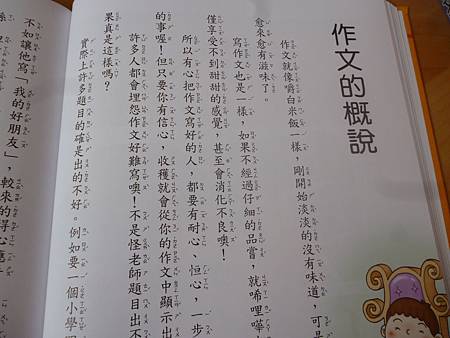 作文的概說
作文就像嚼白米飯一樣，剛開始淡淡的沒有味道，可是
愈來愈有滋味了。
寫作文也是一樣，如果不經過仔細的品嘗，就唏哩嘩
僅享受不到甜甜的感覺，甚至會消化不良噢！
所以有心把作文寫好的人，都要有耐心、恒心，一步
的事喔！但只要你有信心，收穫就會從你的作文中顯示出
許多人都會埋怨作文好難寫噢！不是怪老師題目出不
果真是這樣嗎？
實際上許多題目的確是出的不好。例如要一個小學
不如讓他寫「我的好朋友」，較來的得心應